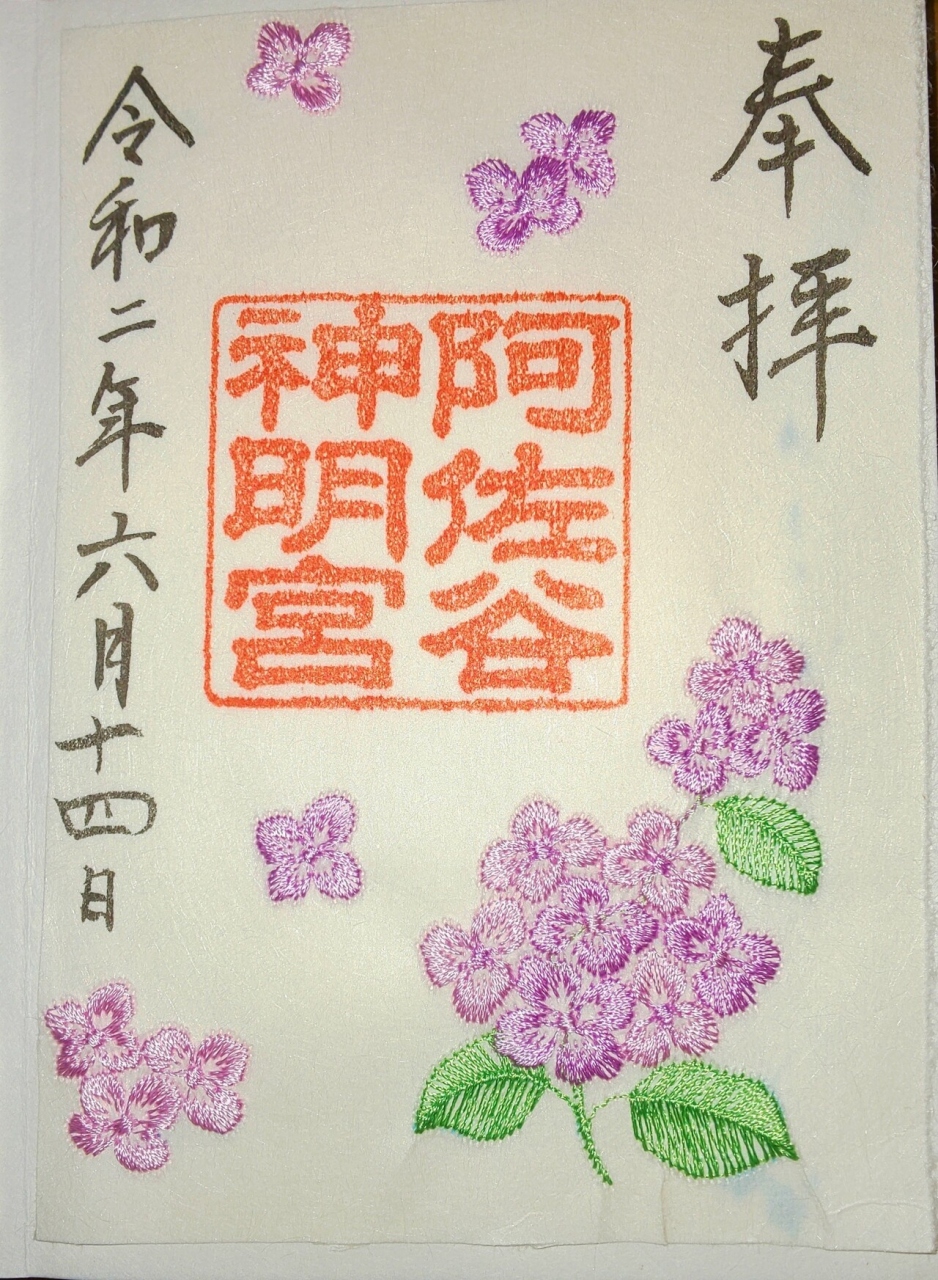 奉拝
阿佐谷
神明宮
令和二年六月十四日